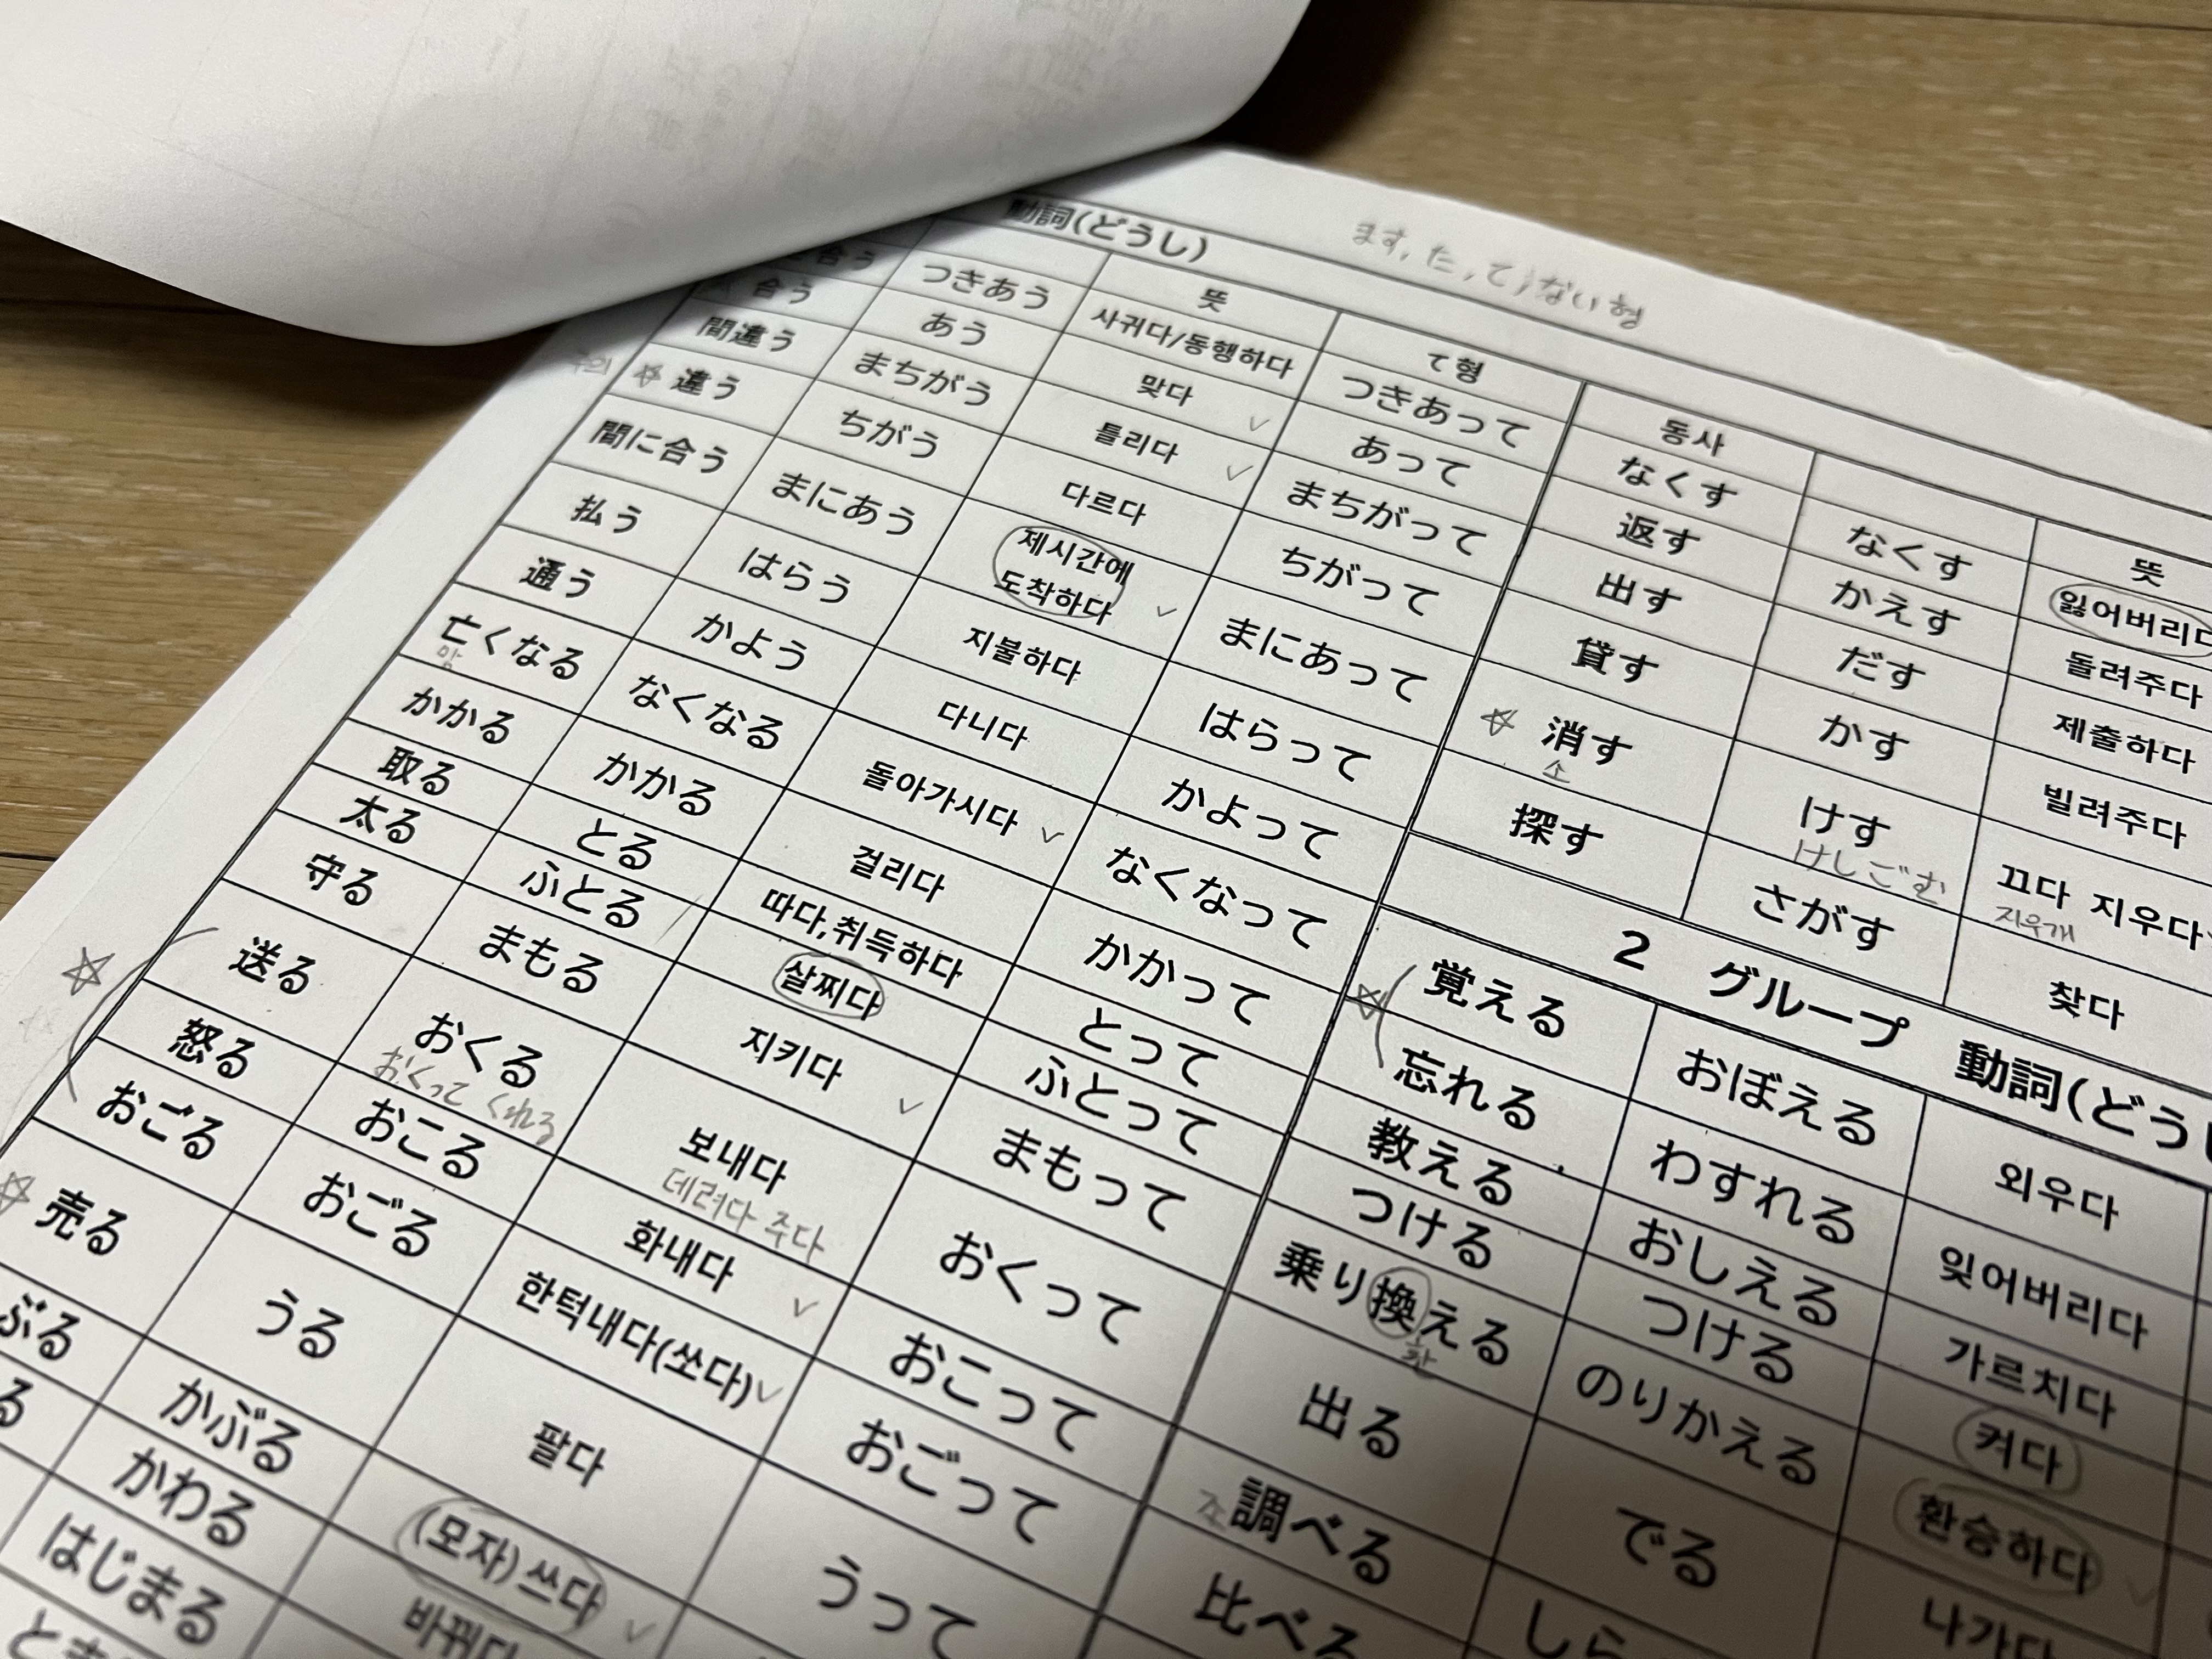 動詞(どうし)
ます, た, て, ない 형
뜻 て형
合う つきあう 사귀다/동행하다 つきあって
合う あう 맞다 あって
間違う まちがう 틀리다 まちがって
주의 違う ちがう 다르다 ちがって
間に合う まにあう 제시간에 도착하다 まにあって
払う はらう 지불하다 はらって
通う かよう 다니다 かよって
亡くなる なくなる 돌아가시다 なくなって
망
かかる かかる 걸리다 かかって
取る とる 따다,취득하다 とって
太る ふとる 살찌다 ふとって
守る まもる 지키다 まもって
送る おくる 보내다 おくって
おくって くれる 데려다 주다
怒る おこる 화내다 おこって
おごる おごる 한턱내다(쏘다) おごって
売る うる 팔다 うって
ぶる かぶる (모자)쓰다
る かわる 바뀌다
はじまる
동사 뜻
なくす なくす 잃어버리다
返す かえす 돌려주다
出す だす 제출하다
貸す かす 빌려주다
消す けす 끄다 지우다
소 けしごむ 지우개
探す さがす 찾다
2 グループ 動詞(どうし
覚える おぼえる 외우다
忘れる わすれる 잊어버리다
教える おしえる 가르치다
つける つける 켜다
乗り換える のりかえる 환승하다
환
出る でる 나가다
조 調べる しら
比べる